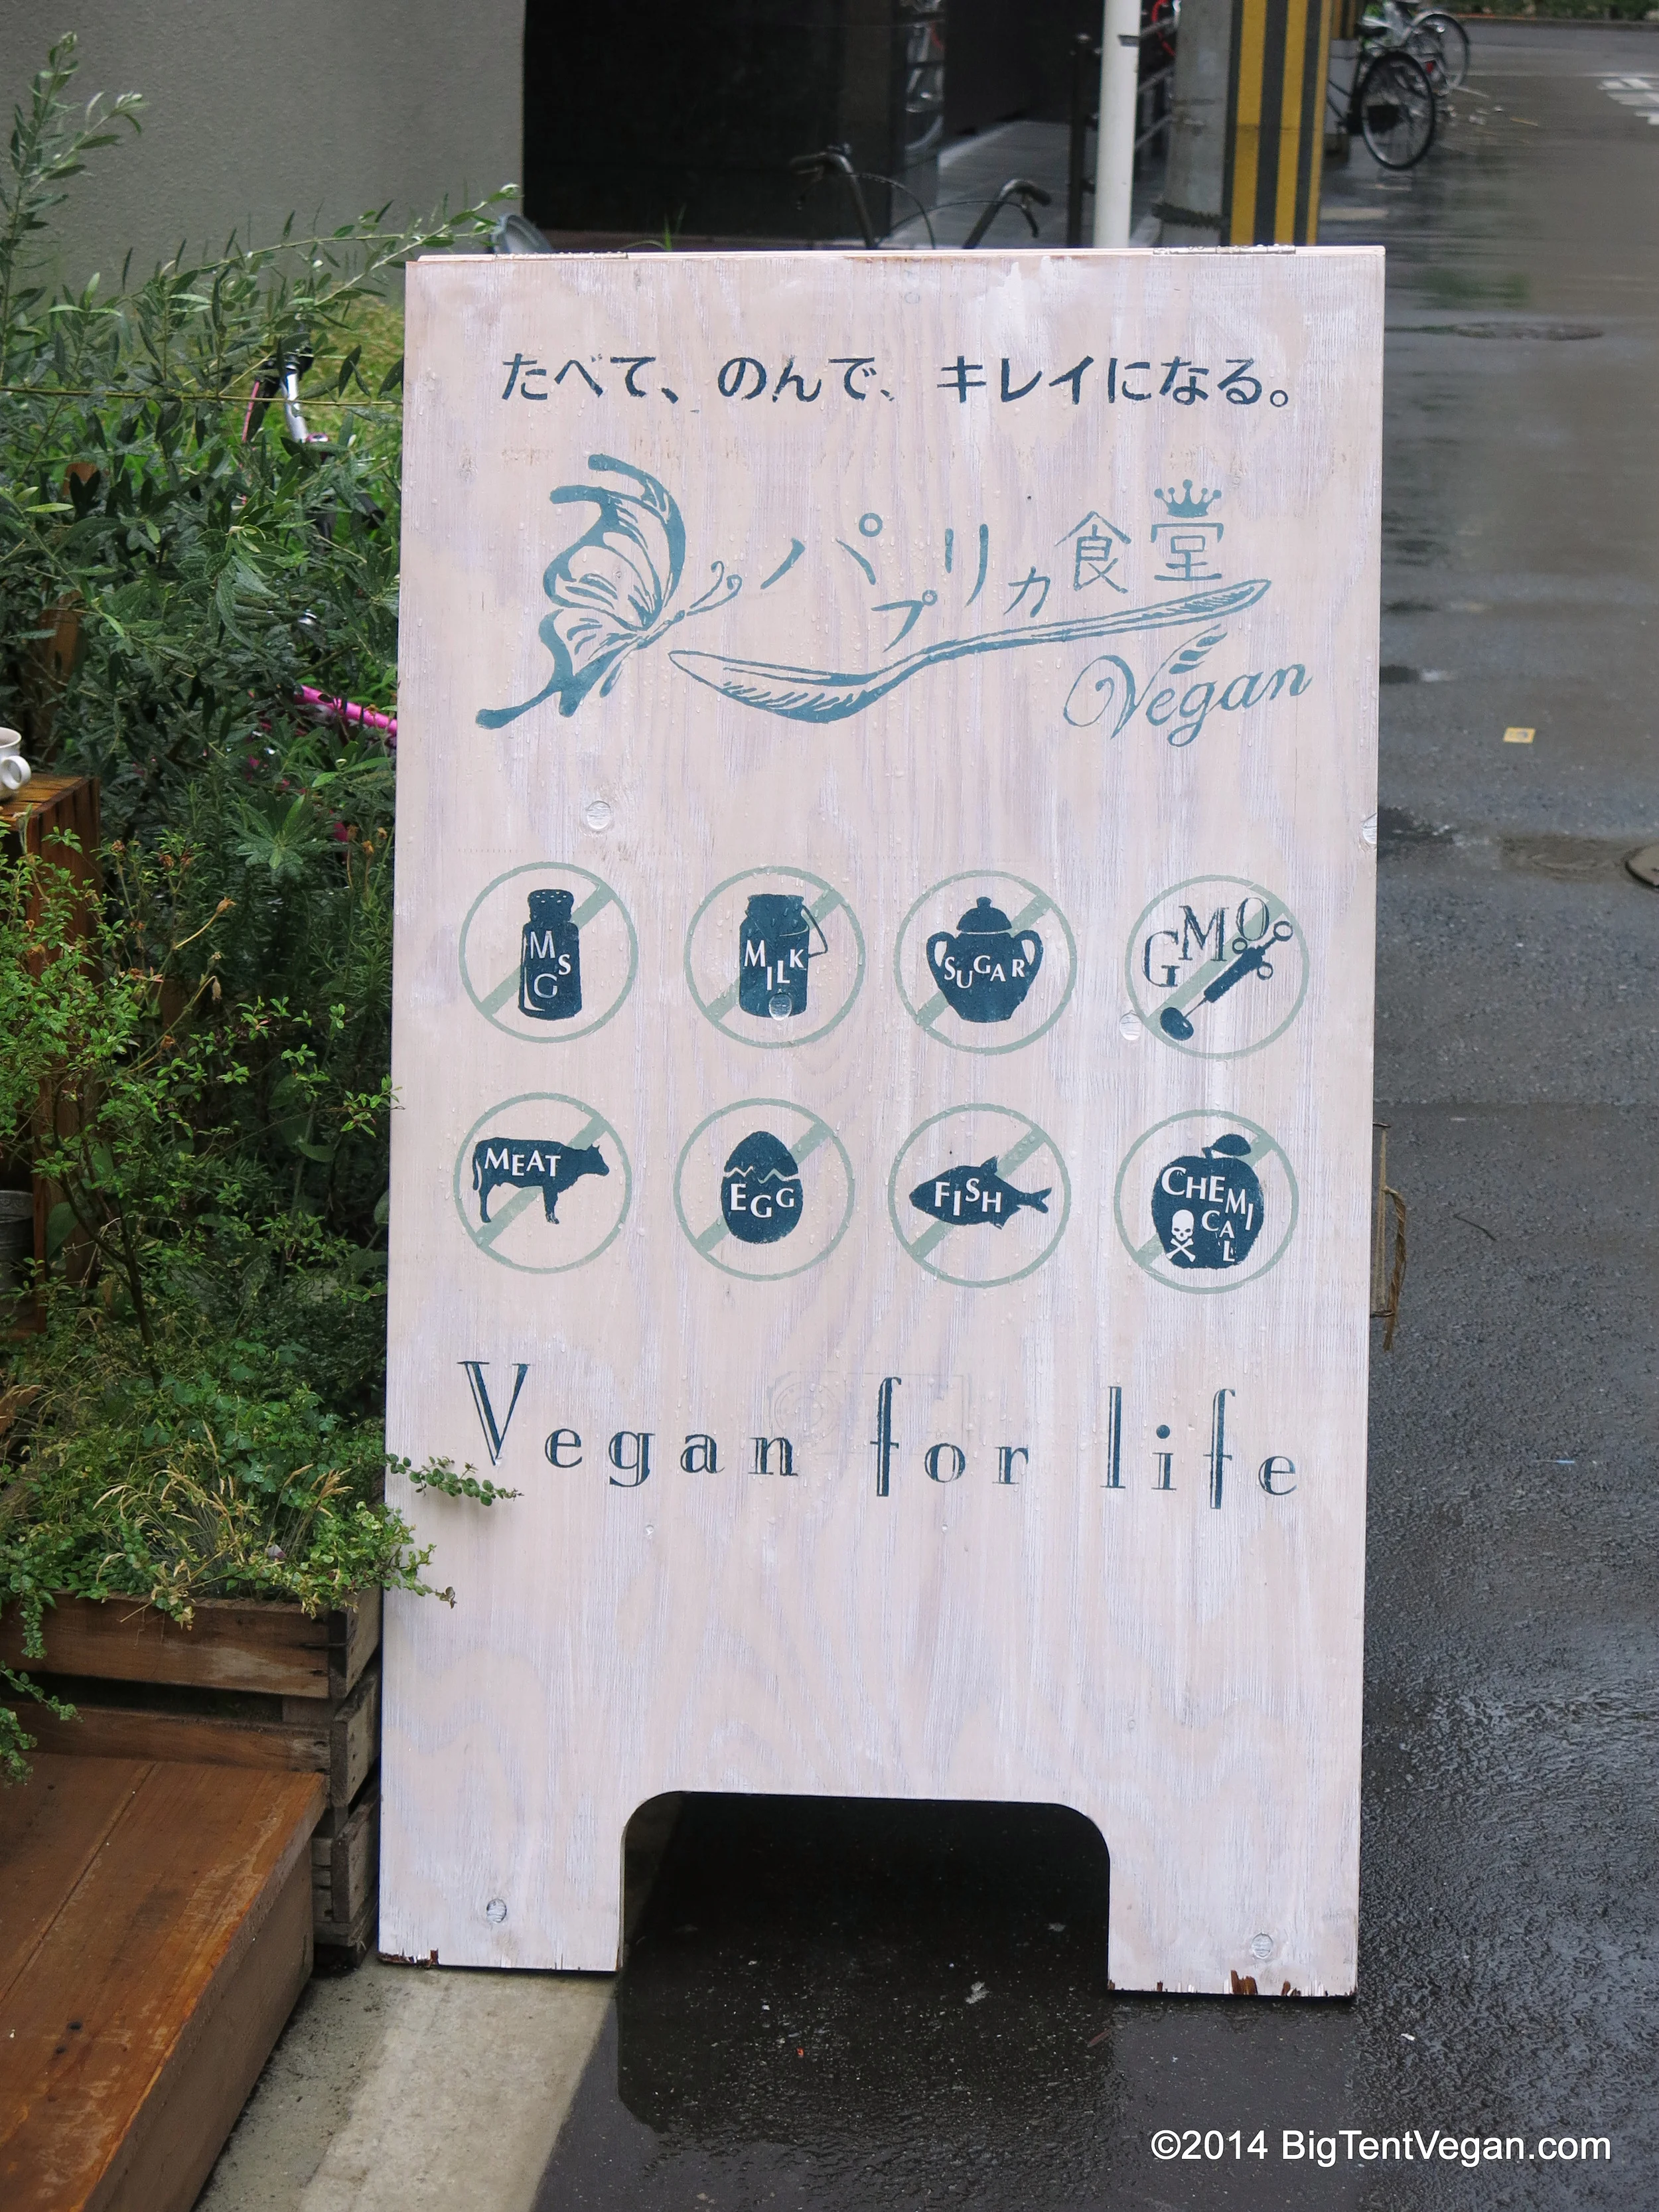 たべて、のんで、キレイになる。
パプリカ食堂
Vegan
MSG
MILK
SUGAR
GMO
MEAT
EGG
FISH
CHEMICAL
Vegan for life
©2014 BigTentVegan.com